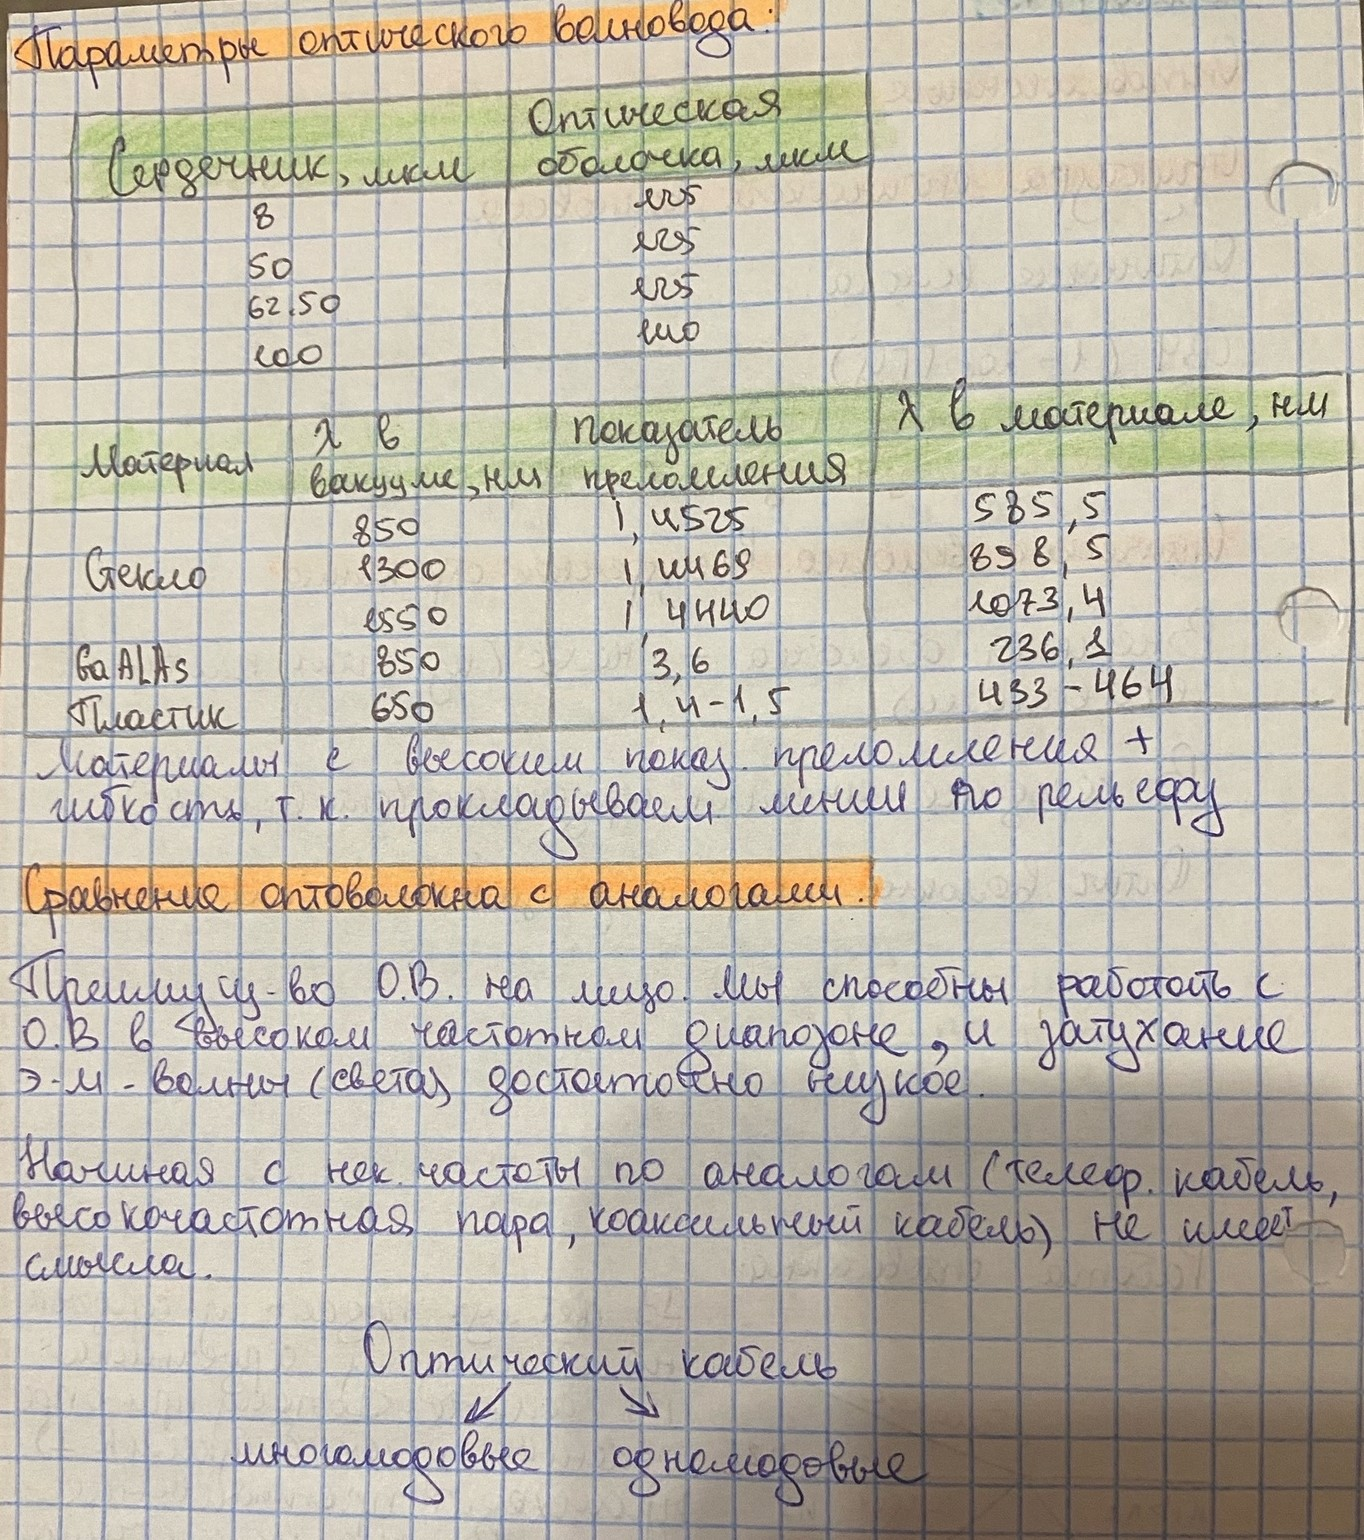 Параметры оптического волновода:
Сердечник, мкм | Оптическая оболочка, мкм
8 | 125
50 | 125
62.50 | 125
100 | 140
Материал | λ в вакууме, нм | показатель преломления | λ в материале, нм
Стекло | 850 | 1,4525 | 585,5
1300 | 1,4469 | 898,5
1550 | 1,4440 | 1073,4
GaALAs | 850 | 3,6 | 236,1
Пластик | 650 | 1,4-1,5 | 433-464
Материалы с высоким показ. преломления +
гибкость, т.к. прокладываем линии по рельефу
Сравнение оптоволокна с аналогами.
Преимущ-во О.В. на лицо. Мы способны работать с
О.В в высоком частотном диапозоне, и затухание
э-м-волны (света) достаточно низкое.
Начиная с нек. частоты по аналогам (телеф. кабель,
высокочастотная пара, коаксильный кабель) не имеет
смысла.
Оптический кабель
многомодовые одномодовые